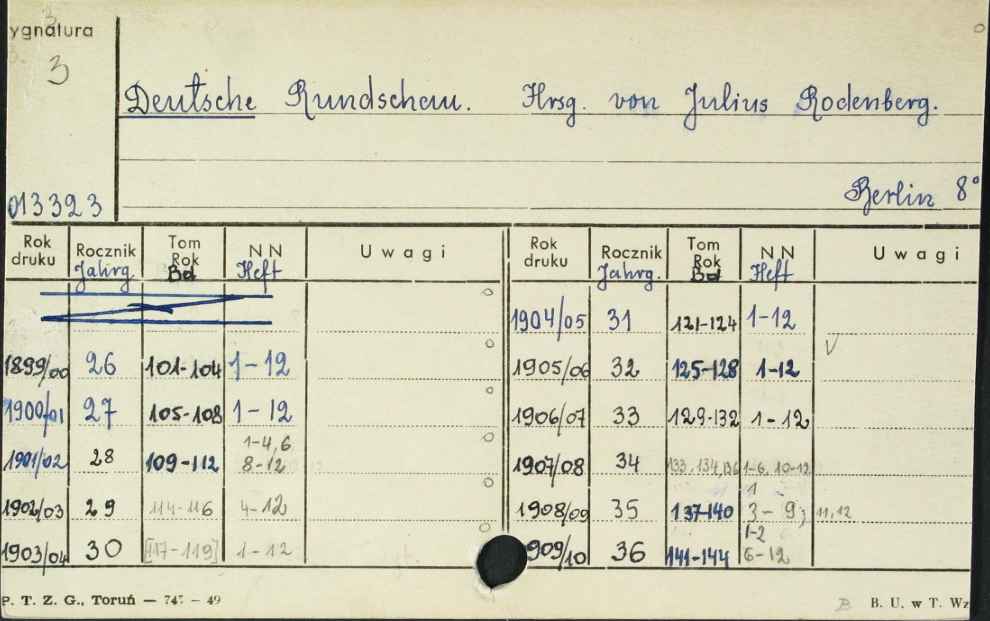 3
ygnatura
3
Deutsche Rundschau. Hrsg. von Julius Rodenberg.
Berlin 8°
013323
Rok druku | Rocznik Jahrg. | Tom Rok Bd | NN Heft | Uwagi
1899/00 26 101-104 1-12
1900/01 27 105-108 1-12
1901/02 28 109-112 1-4,6 8-12
1902/03 29 114-116 4-12
1903/04 30 [117-119] 1-12
Rok druku | Rocznik Jahrg. | Tom Rok Bd | NN Heft | Uwagi
1904/05 31 121-124 1-12
1905/06 32 125-128 1-12 V
1906/07 33 129-132 1-12
1907/08 34 133,134,136 1-6, 10-12
1908/09 35 137-140 1 3-9; 11,12
909/10 36 141-144 1-2 6-12
P. T. Z. G., Toruń — 747 - 49
B B. U. w T. Wz